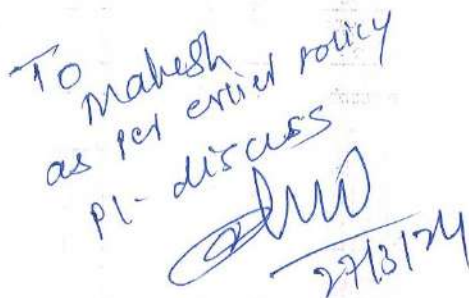 To
Mahesh
as per erlier policy
pl- discuss
27/3/24